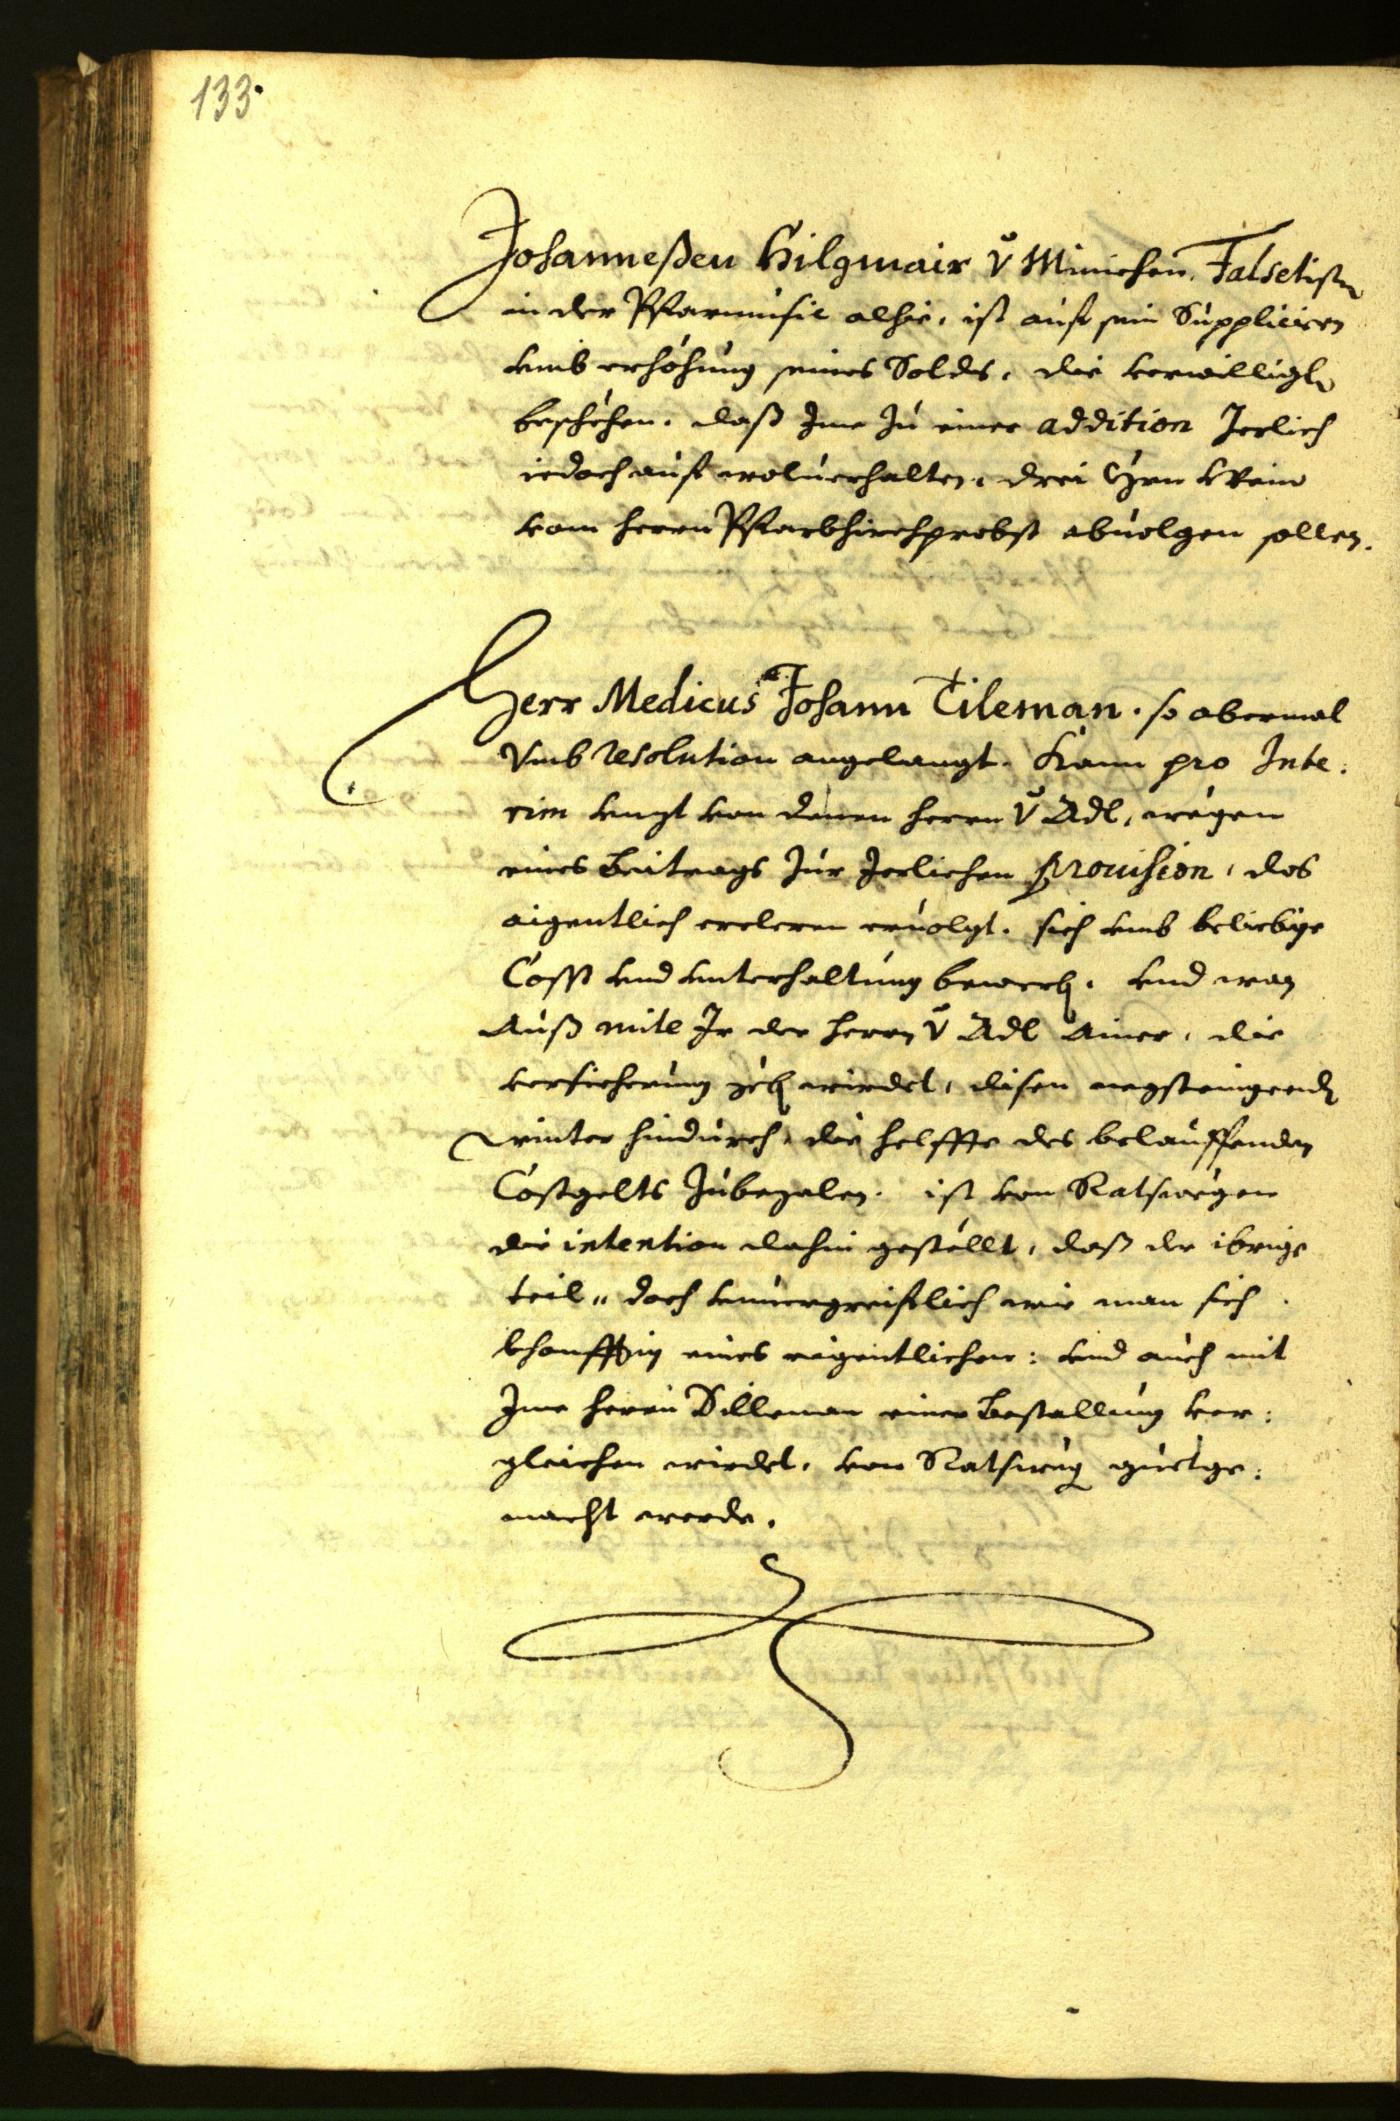 133.
Johanneßen Hilgmair v̈ Minichen. Falsetisten
in der Pfarrmusic alhie, ist auf sein Suppliciren
vmb erhöhung seines Solds, die verwilligung
beschehen, daß Ime zu einer addition Jerlich
iedoch auf woluerhalten, drei Ÿrn Wein
vom herrn Pfarrkhirchprobst abuolgen sollen.
Herr Medicus Johann Tileman. so abermal
Vmb resolution angelangt. Kann pro Inte:
rim vnzt von denen herrn v̈ Adl, wegen
eines Beitrags zur Jerlichen prouision, das
aigentlich ercleren eruolgt. sich vmb beliebige
Cosst vnd vnterhaltung bewerben. vnd wan
Auß mitl Ir der herrn v̈ Adl Ainer, die
versicherung geben wirdet, disen negsteingeenden
winter hindurch, die helffte des belauffenden
Costgelts zubezalen. ist von Ratswegen
die intention dahin gestöllt, daß der ibrige
teil, doch vnuergreiflich wie man sich
khonfftig eines eigentlichen: vnd auch mit
Ime herrn Dilleman einer Bestallung ver:
gleichen wirdet, von Ratsweg guetge:
macht werde.